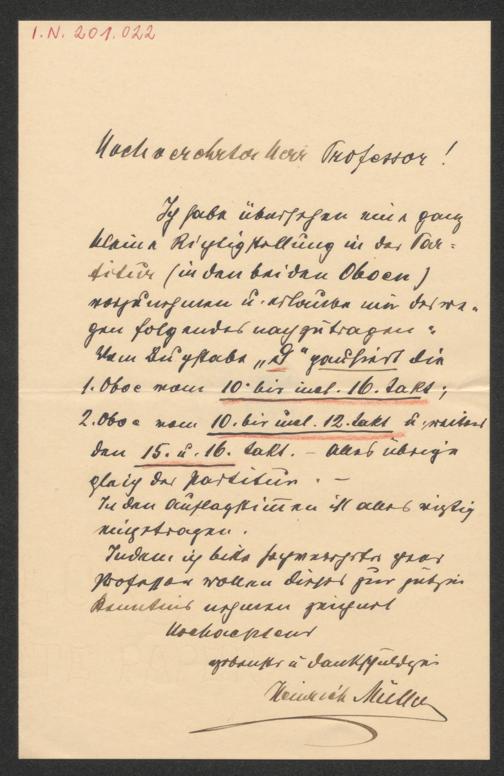 I.N. 201.022
Hochverehrter Herr Professor!
Ich habe übersehen eine ganz
kleine Richtigstellung in der Par-
titur (in den beiden Oboen)
vorzunehmen u. erlaube mir deswe-
gen folgendes nachzutragen:
Vom Buchstabe „G" pausiert die
1. Oboe vom 10. bis incl. 16. Takt;
2. Oboe vom 10. bis incl. 12. Takt u. weiters
den 15. u. 16. Takt. – Alles übrige
gleich der Partitur. –
In den Auflagstimmen ist alles richtig
eingetragen.
Indem ich bitte hochverehrter Herr
Professor wollen dieses zur gütigen
Kenntnis nehmen zeichnet
Hochachtend
ergebenster u. dankschuldigst
Heinrich Müller